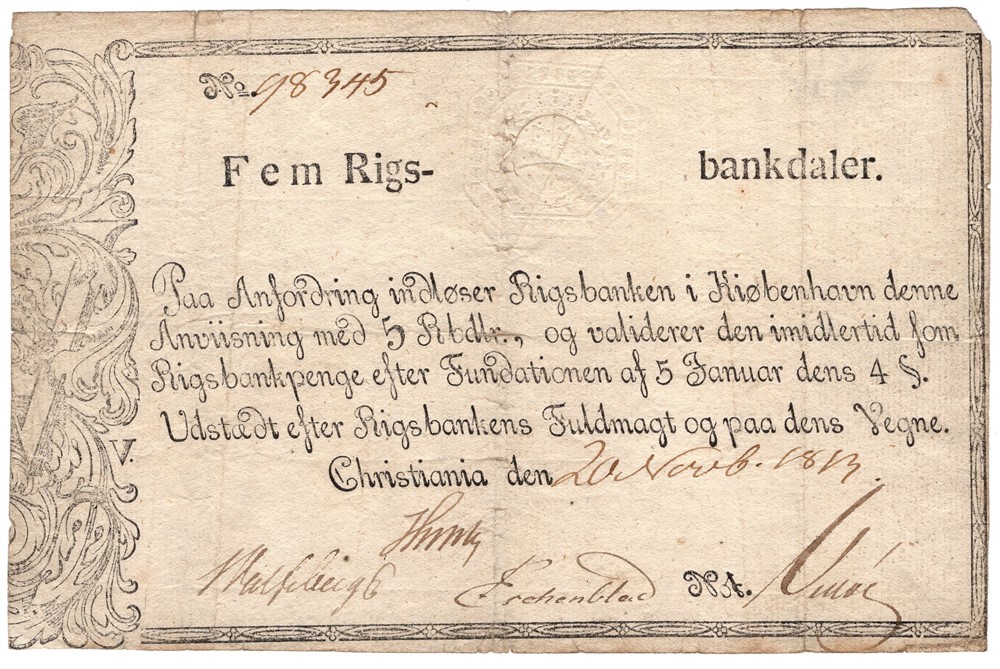 No. 98345
Fem Rigs- bankdaler.
Paa Anfordring indløser Rigsbanken i Kiøbenhavn denne
Anviisning med 5 Rbdlr., og validerer den imidlertid som
Rigsbankpenge efter Fundationen af 5 Januar dens 4 §.
Udstædt efter Rigsbankens Fuldmagt og paa dens Vegne.
V.
Christiania den 20 Novb. 1813.